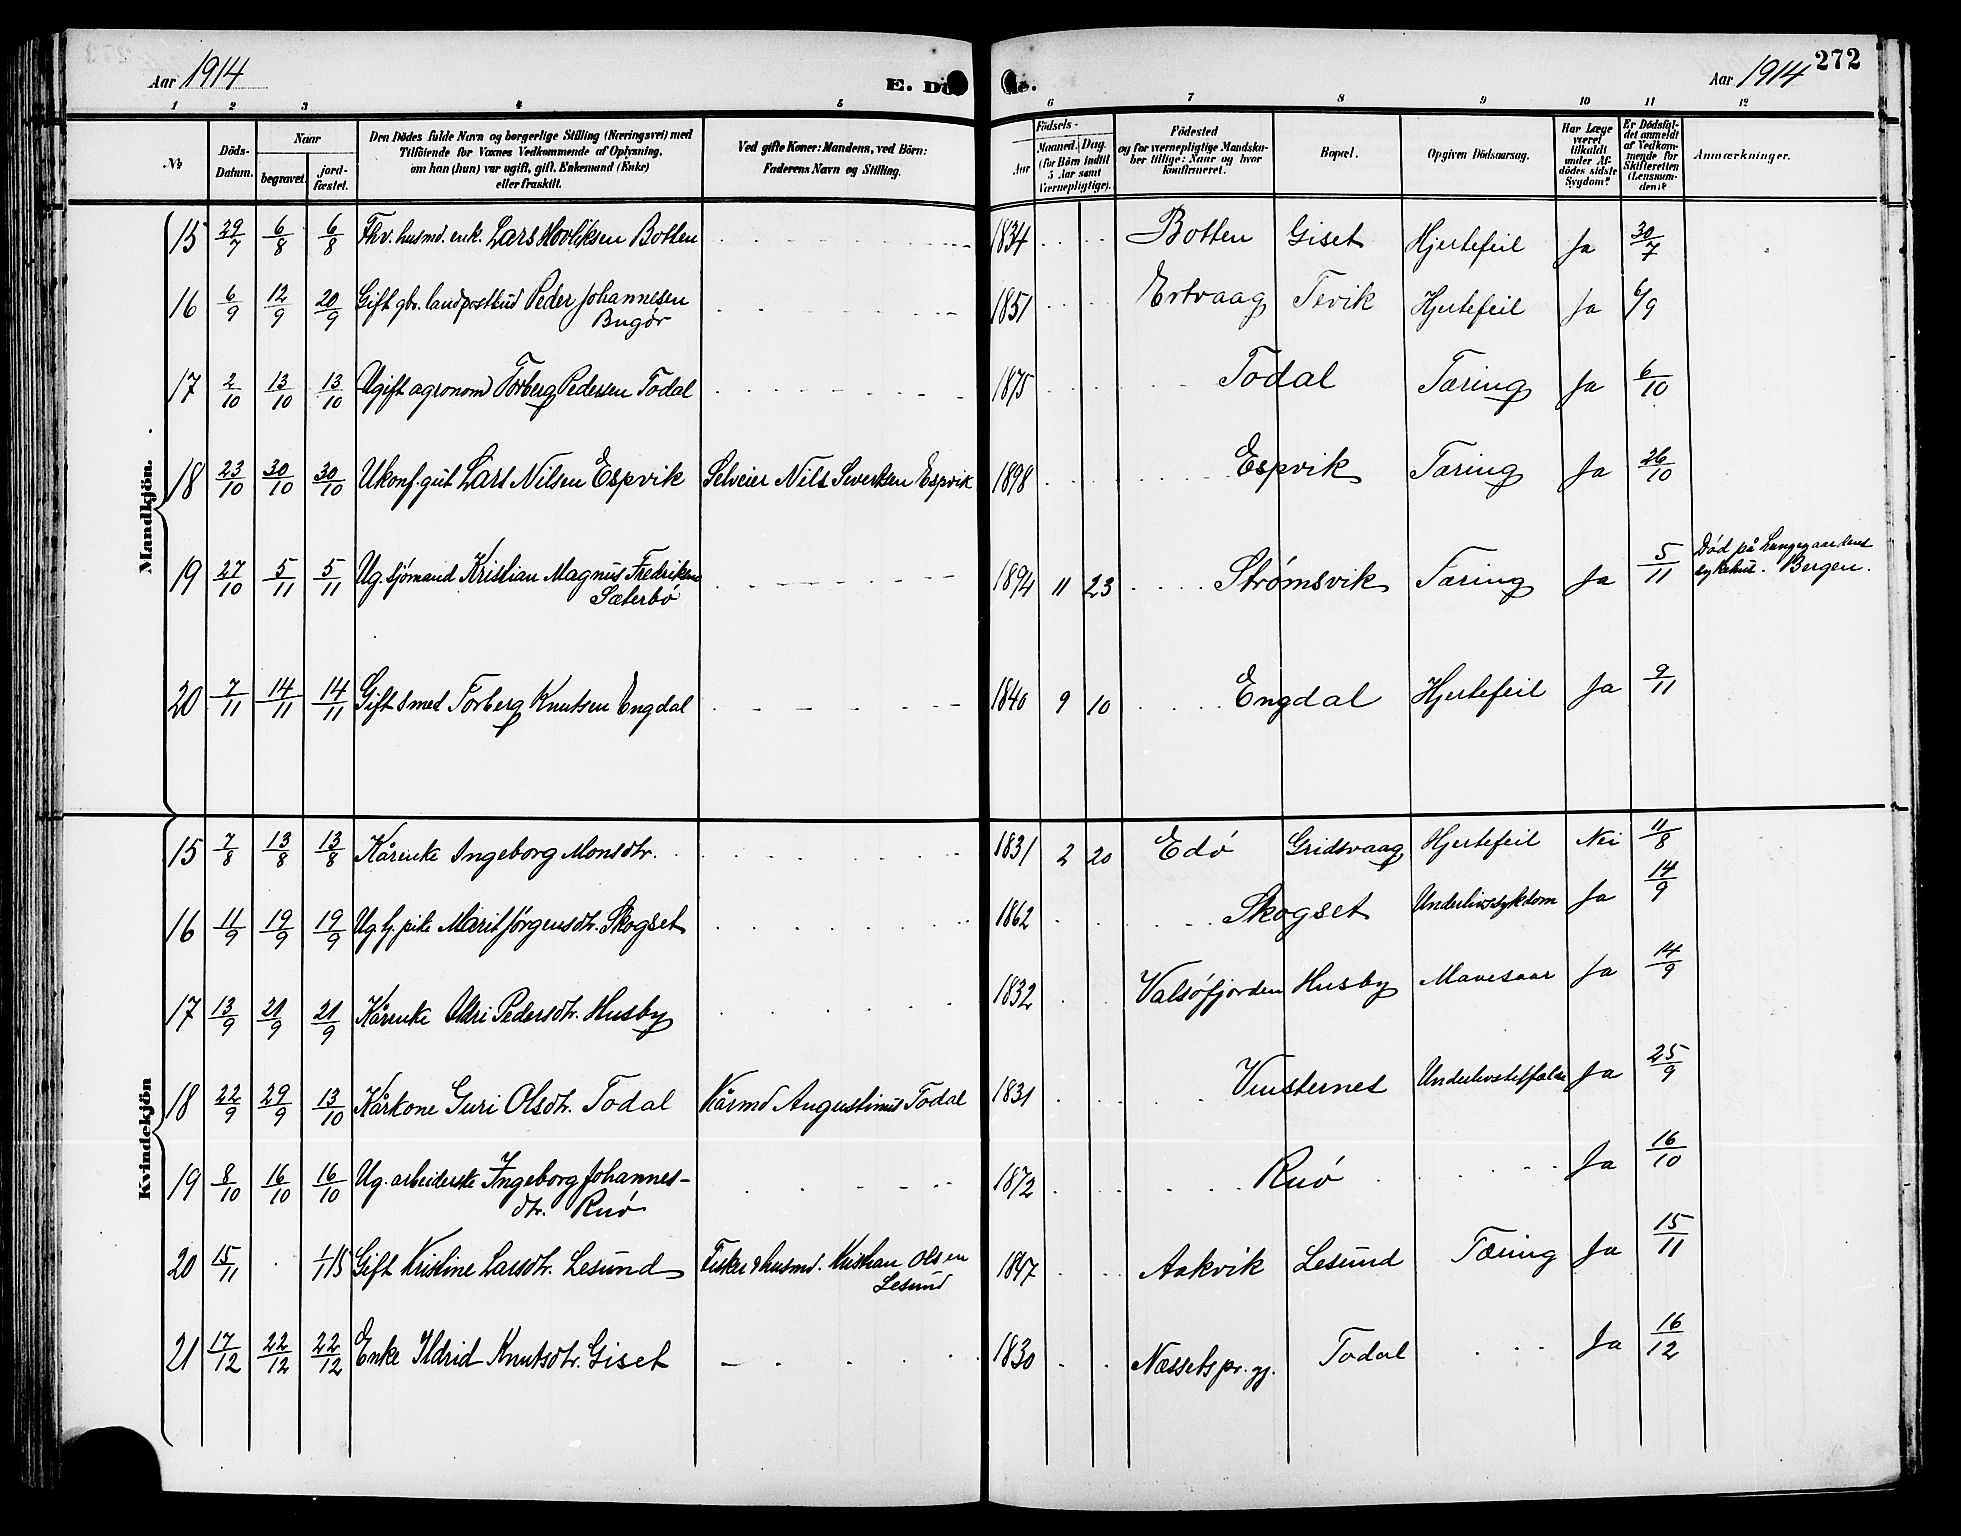 Aar 1914
E. Dö de.
Aar 1914
272
1 2 3 4 5 6 7 8 9 10 11 12
№
Döds-Datum.
Naar
begravet.
jord-fæstet.
Den Dödes fulde Navn og borgerlige Stilling (Næringsvei) med
Tilföiende for Voxnes Vedkommende af Oplysning,
om han (hun) var ugift, gift, Enkemand (Enke)
eller fraskilt.
Ved gifte Koner: Mandens, ved Börn:
Faderens Navn og Stilling.
Födsels-
Aar
Maaned. Dag.
(for Börn indtil
5 Aar samt
Værnepligtige).
Födested
og for værnepligtige Mandska-
ber tillige: Naar og hvor
konfirmeret.
Bopæl.
Opgiven Dödsaarsag.
Har Læge
været
tilkaldt
under Af-
dödes sidste
Sygdom?
Er Dödsfal-
det anmeldt
af Vedkom-
mende for
Skifteretten
(Lensman-
den)?
Anmærkninger.
Mandkjön.
15 29/7 6/8 6/8 Fhv. husmd. enk. Lars Hovliksen Botten 1834 Botten Giset Hjertefeil Ja 30/7
16 6/9 12/9 20/9 Gift gbr. landpostbud Peder Johannesen 1851 Ertvaag Tevik Hjertefeil Ja 6/9
Bugör
17 2/10 13/10 13/10 Ugift agronom Torberg Pedersen Todal 1875 Todal Tæring Ja 6/10
18 23/10 30/10 30/10 Ukonf. gut Lars Nilsen Espvik Selveier Nils Sivertsen Espvik 1898 Espvik Tæring Ja 26/10
19 27/10 5/11 5/11 Ug. sjömand Kristian Magnus Fredriksen 1894 11 23 Strømsvik Tæring Ja 5/11 Död på Lungegaardens
Sæterbö sykehus. Bergen.
20 7/11 14/11 14/11 Gift smed Torberg Knutsen Engdal 1840 9 10 Engdal Hjertefeil Ja 9/11
Kvindekjön
15 7/8 13/8 13/8 Kårenke Ingeborg Monsdtr. 1831 2 20 Edö Gridsvaag Hjertefeil Nei 11/8
16 11/9 19/9 19/9 Ug. tj. pike Marit Jörgensdtr. Skogset 1862 Skogset Underlivssykdom Ja 14/9
17 13/9 21/9 21/9 Kårenke Olldri Pedersdtr. Husby 1832 Valsöfjorden Husby Mavesaar Ja 14/9
18 22/9 29/9 13/10 Kårkone Guri Olsdtr. Todal Kårmd Augustinus Todal 1831 Vinsternes Ja 25/9
19 8/10 16/10 16/10 Ug. arbeiderske Ingeborg Johannes- 1872 Ruö Ja 16/10
dtr. Ruö
20 15/11 1/115 Gift Kristine Larsdtr. Lesund Fisker & husmd. Kristian Olsen 1847 Aakvik Lesund Tæring Ja 15/11
Lesund
21 17/12 22/12 22/12 Enke Ildrid Knutsdtr. Giset 1830 Næssets pr. gj. Todal Ja 16/12